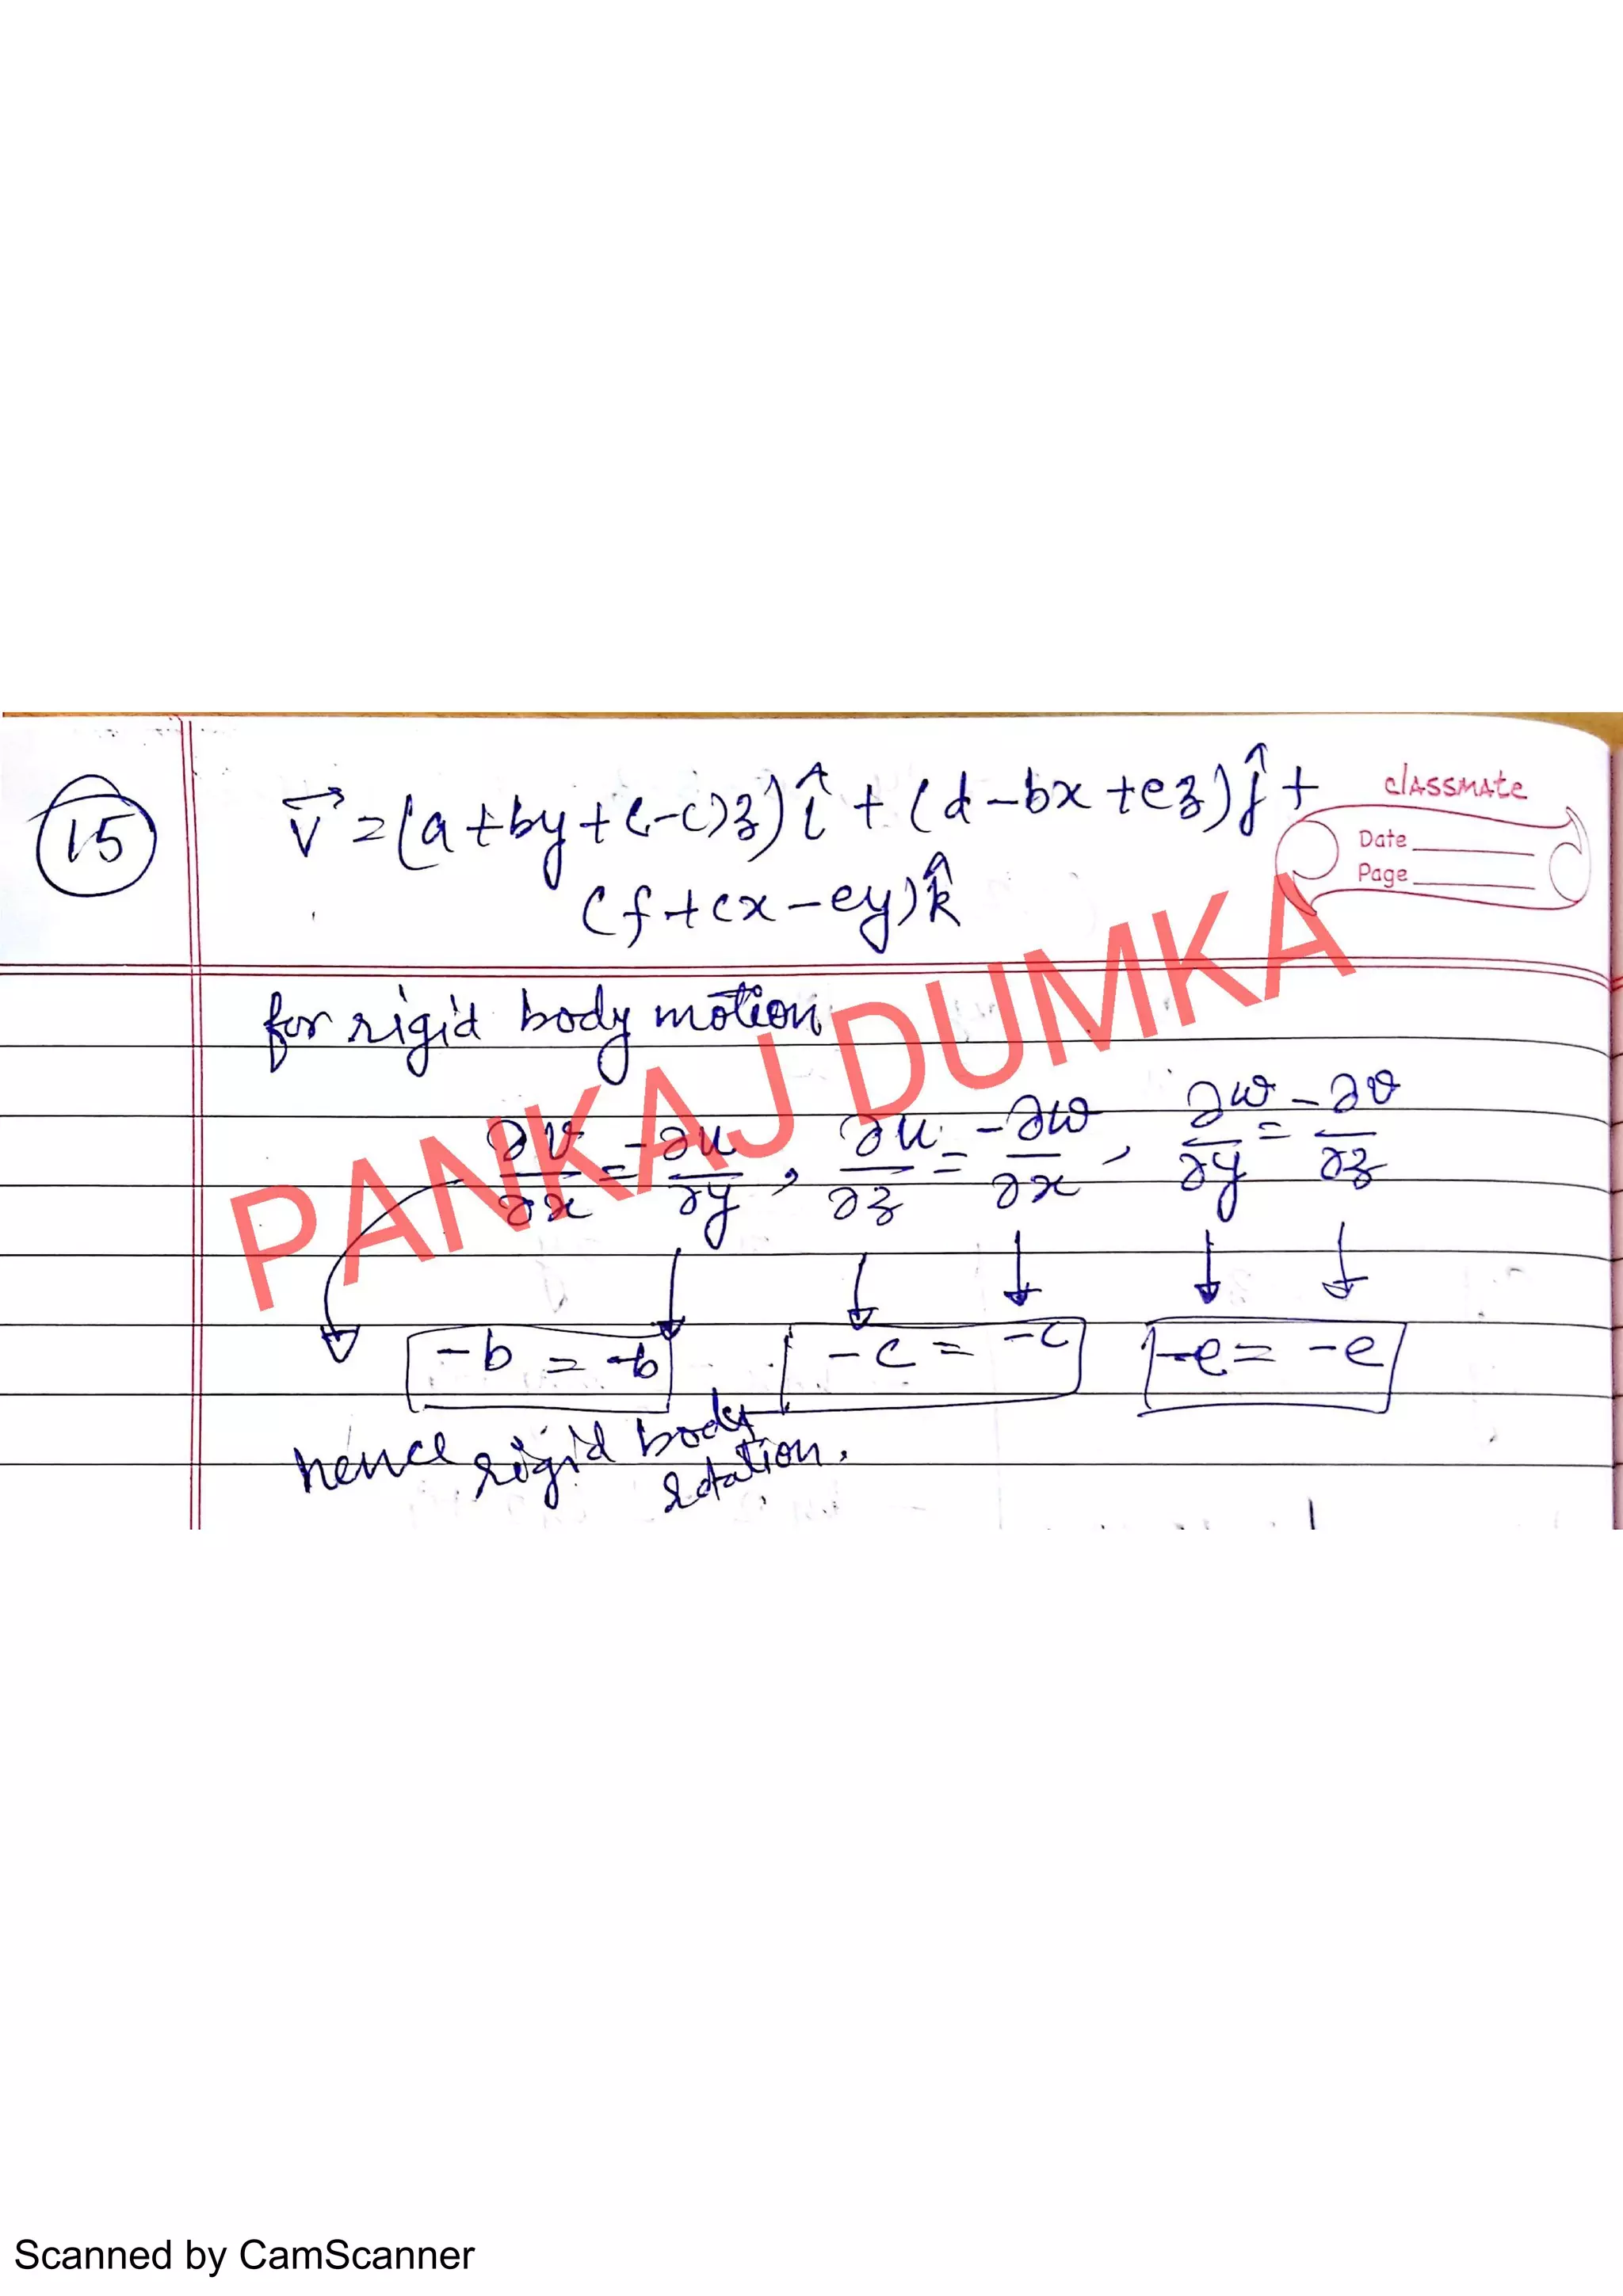 15
V⃗ = (a+by+(-c)z) î + (d-bx+ez) ĵ +
(f+cx-ey) k̂
classmate
Date
Page
for rigid body motion
∂v/∂x = -∂u/∂y , ∂u/∂z = -∂w/∂x , ∂w/∂y = -∂v/∂z
-b = -b -c = -c -e = -e
hence rigid body
rotation.
PANKAJ DUMKA
Scanned by CamScanner